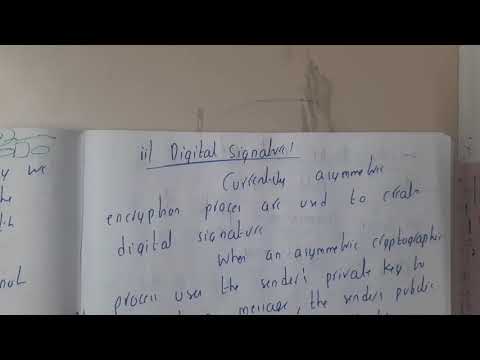 ii) Digital Signature:
Currently asymmetric
encryption proces are used to create
digital signature
When an asymmetric cryptographic
process uses the sender's private key to
message, the sender's public
y we
the